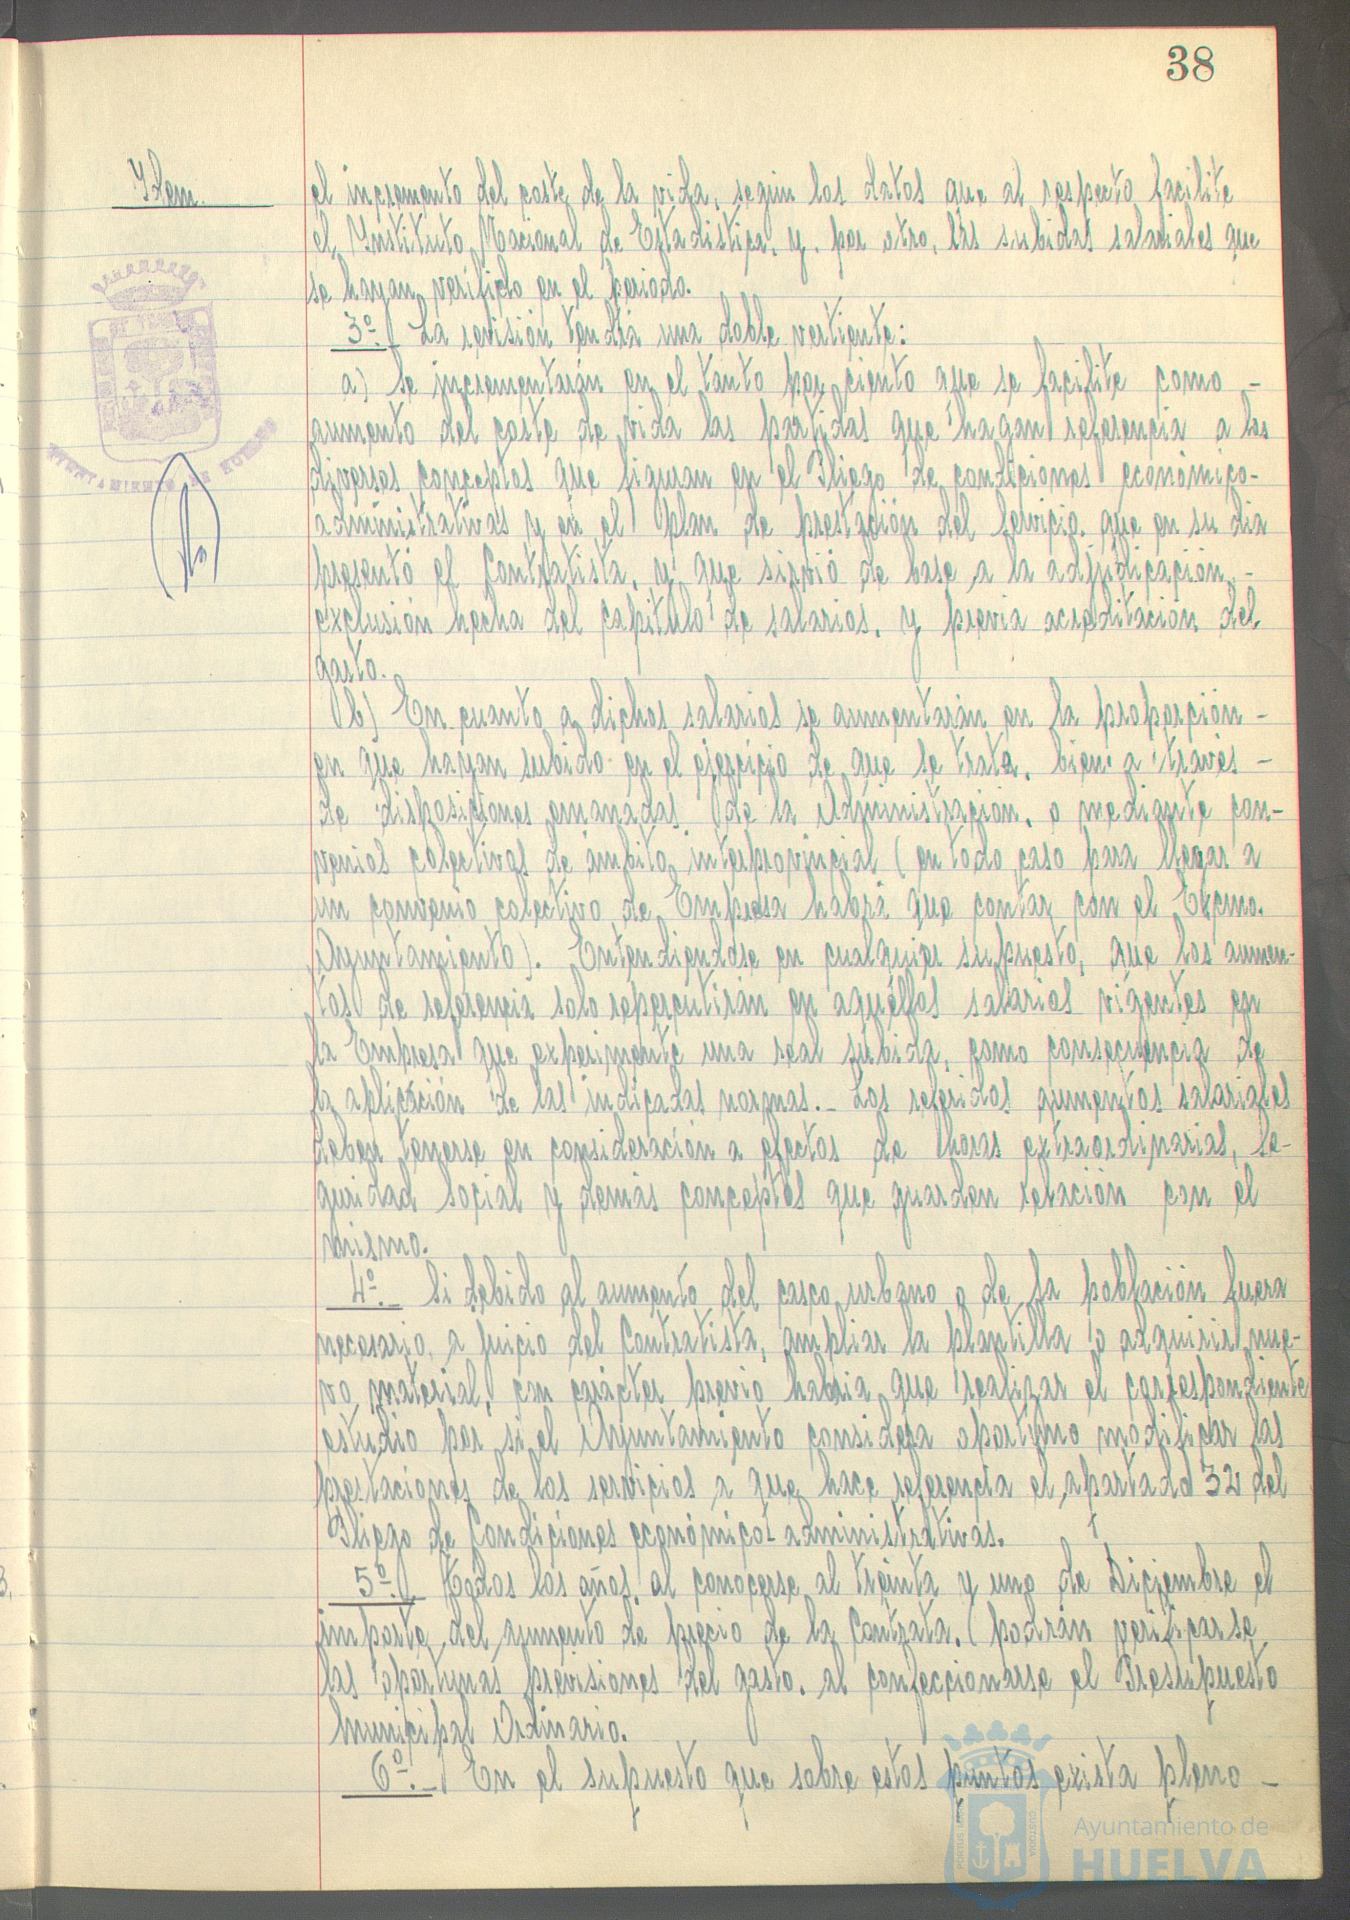 38
Idem.
el incremento del coste de la vida, según los datos que al respecto facilite
el Instituto Nacional de Estadistica, y, por otro, las subidas salariales que
se hayan verificdo en el periodo.
3º.- La revisión tendrá una doble vertiente:
a) Se incrementarán en el tanto por ciento que se facilite como -
aumento del coste de vida las partidas que hagan referencia a los
diversos conceptos que figuran en el Pliego de condiciones económico-
administrativas y en el plan de prestación del servicio, que en su dia
presentó el Contratista, y que sirvió de base a la adjudicación, -
exclusión hecha del capitulo de salarios, y previa acreditación del
gasto.
b) En cuanto a dichos salarios se aumentarán en la proporción -
en que hayan subido en el ejercicio de que se trata, bien a través -
de disposiciones emanadas de la Administración, o mediante con-
venios colectivos de ámbito interprovincial (en todo caso para llegar a
un convenio colectivo de Empresa habrá que contar con el Excmo.
Ayuntamiento). Entendiendose en cualquier supuesto, que los aumen-
tos de referencia solo repercutirán en aquéllos salarios vigentes en
la Empresa que experimente una real subida, como consecuencia de
la aplicación de las indicadas normas.- Los referidos aumentos salariales
deben tenerse en consideración a efectos de horas extraordinarias, Se-
guridad Social y demás conceptos que guarden relación con el
mismo.
4º.- Si debido al aumento del casco urbano o de la población fuera
necesario, a juicio del Contratista, ampliar la plantilla o adquirir nue-
vo material, con carácter previo habria que realizar el correspondiente
estudio por si el Ayuntamiento considera oportuno modificar las
prestaciones de los servicios a que hace referencia el apartado 32 del
Pliego de Condiciones económicos administrativas.
5º.- Todos los años, al conocerse al treinta y uno de Diciembre el
importe del aumento de precio de la Contrata, podrán verificarse
las oportunas previsiones del gasto, al confeccionarse el Presupuesto
Municipal Ordinario.
6º.- En el supuesto que sobre estos puntos exista pleno -
AYUNTAMIENTO DE HUELVA
Ayuntamiento de
HUELVA